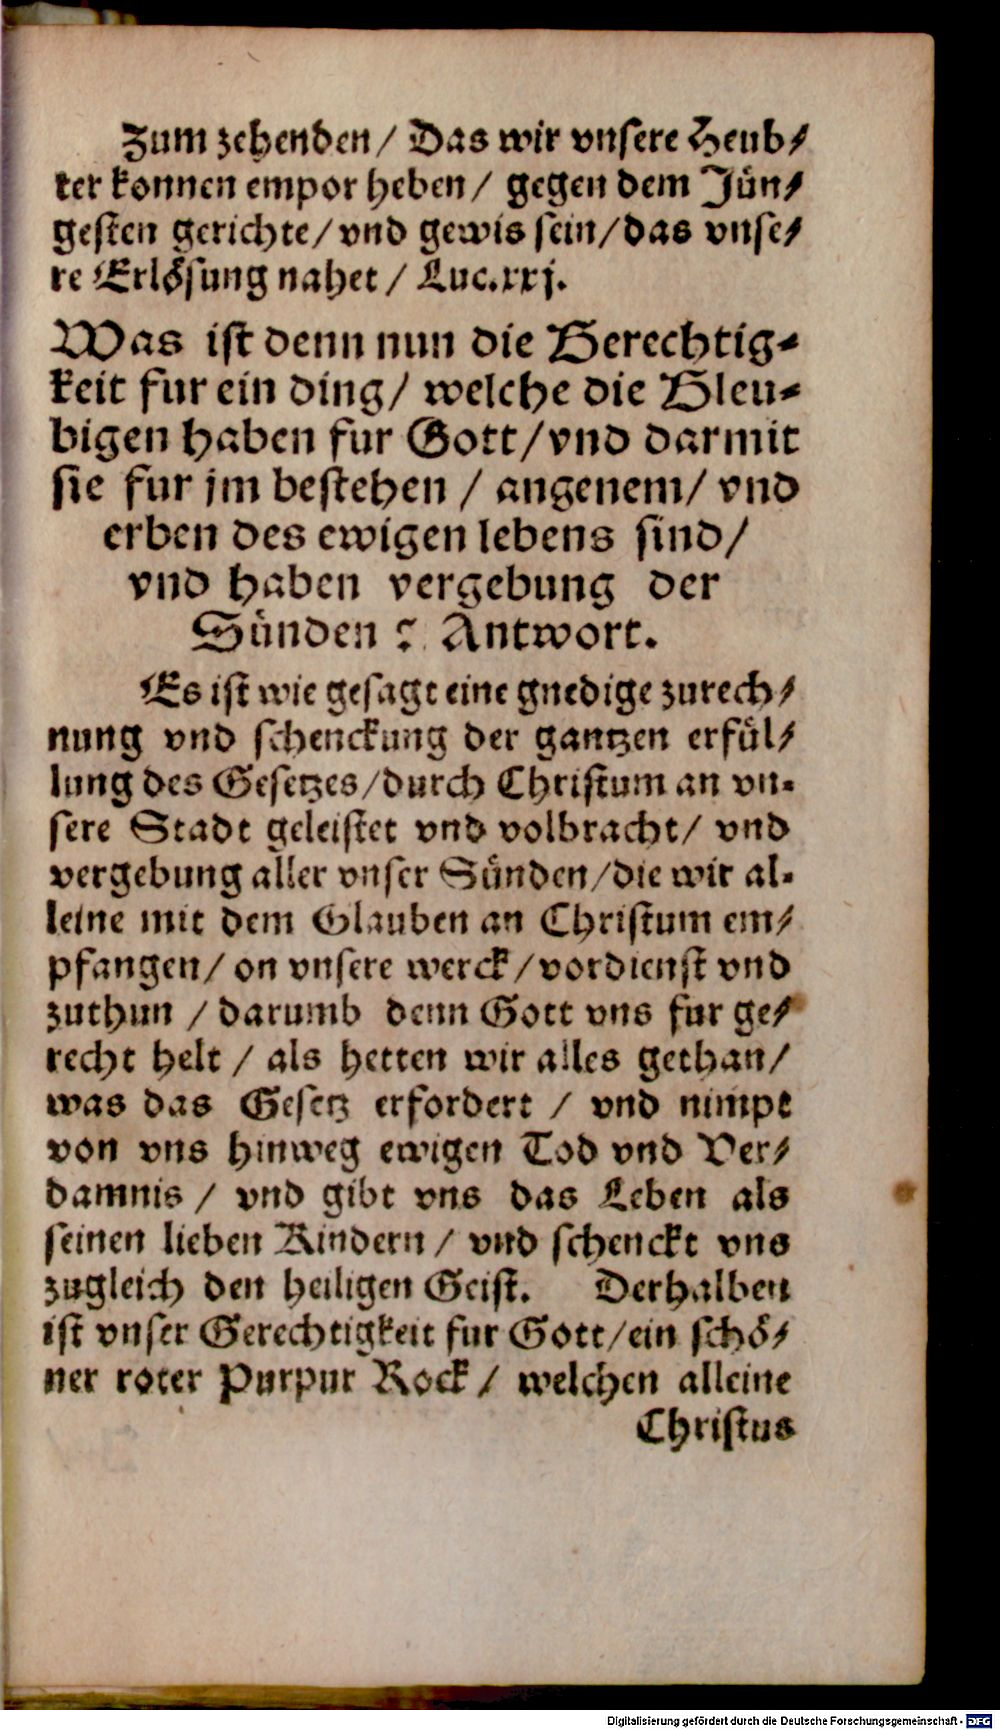 Zum zehenden / Das wir vnsere Heub⸗
ter konnen empor heben / gegen dem Jün⸗
gesten gerichte / vnd gewis sein / das vnse⸗
re Erlösung nahet / Luc. xxj.
Was ist denn nun die Gerechtig⸗
keit fur ein ding / welche die Gleu⸗
bigen haben fur Gott / vnd darmit
sie fur jm bestehen / angenem / vnd
erben des ewigen lebens sind /
vnd haben vergebung der
Sünden ? Antwort.
Es ist wie gesagt eine gnedige zurech⸗
nung vnd schenckung der gantzen erfül⸗
lung des Gesetzes / durch Christum an vn⸗
sere Stadt geleistet vnd volbracht / vnd
vergebung aller vnser Sünden / die wir al⸗
leine mit dem Glauben an Christum em⸗
pfangen / on vnsere werck / vordienst vnd
zuthun / darumb denn Gott vns fur ge⸗
recht helt / als hetten wir alles gethan /
was das Gesetz erfordert / vnd nimpt
von vns hinweg ewigen Tod vnd Ver⸗
damnis / vnd gibt vns das Leben als
seinen lieben Kindern / vnd schenckt vns
zugleich den heiligen Geist. Derhalben
ist vnser Gerechtigkeit fur Gott / ein schö⸗
ner roter Purpur Rock / welchen alleine
Christus
Digitalisierung gefördert durch die Deutsche Forschungsgemeinschaft - DFG